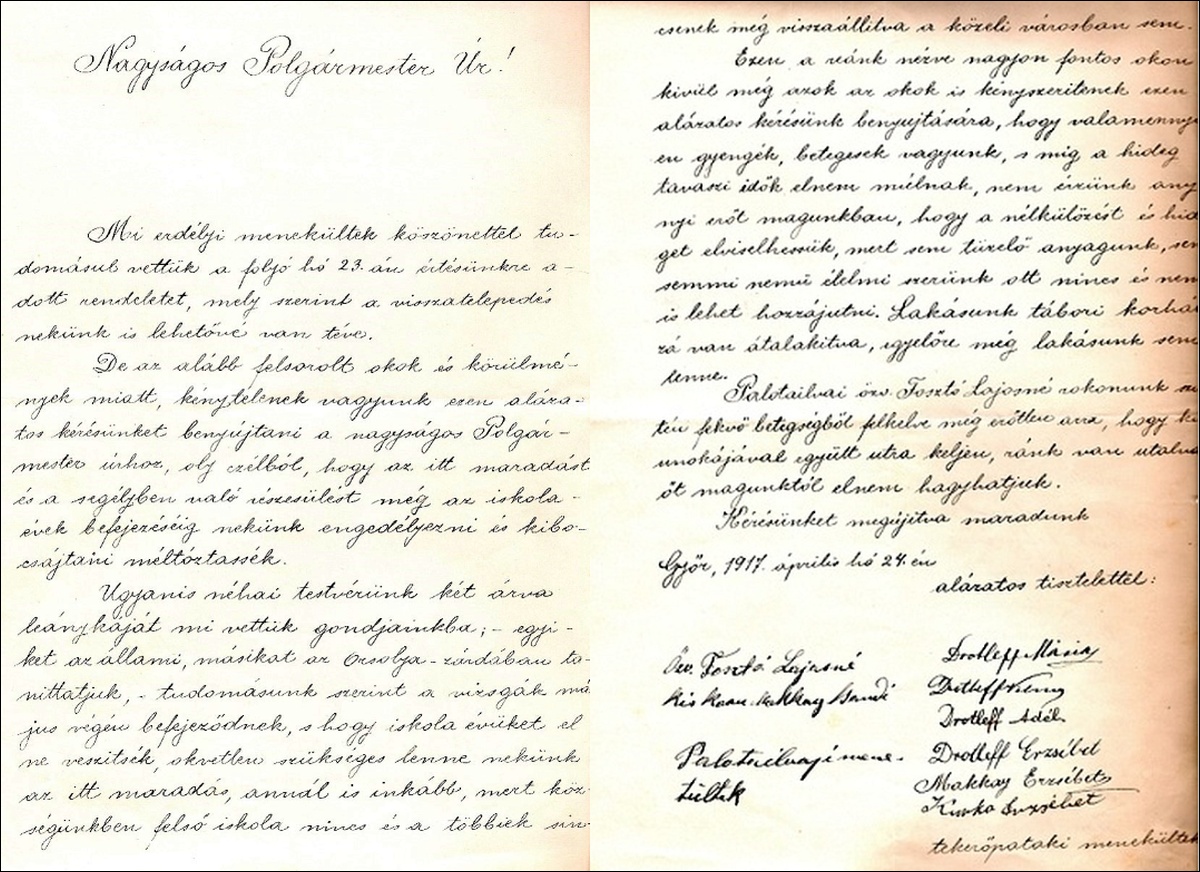 Nagyságos Polgármester Úr!
Mi erdélyi menekültek köszönettel tu-
domásul vettük a folyó hó 23.-án értésünkre a-
dott rendeletet, mely szerint a visszatelepedés
nekünk is lehetővé van téve.
De az alább felsorolt okok és körülmé-
nyek miatt, kénytelenek vagyunk ezen alára-
tos kérésünket benyújtani a nagyságos Polgár-
mester úrhoz, oly czélból, hogy az itt maradást
és a segélyben való részesülést még az iskola-
évek befejezéséig nekünk engedélyezni és kibo-
csájtani méltóztassék.
Ugyanis néhai testvérünk két árva
leánykáját mi vettük gondjainkba; - egyi-
ket az állami, másikat az Orsolya-zárdában ta-
níttatjuk, - tudomásunk szerint a vizsgák má
jus végén befejeződnek, s hogy iskola évüket el
ne veszitsék, okvetlen szükséges lenne nekünk
az itt maradás, annál is inkább, mert köz-
ségünkben felső iskola nincs és a többiek sin-
csenek még visszaállitva a közeli városban sem.
Ezen a reánk nézve nagyon fontos okon
kivül még azok az okok is kényszeritenek ezen
alázatos kérésünk benyujtására, hogy valamennyi
en gyengék, betegesek vagyunk, s mig a hideg
tavaszi idők elnem múlnak, nem érzünk any
nyi erőt magunkban, hogy a nélkülözést és hide
get elviselhessük, mert sem tüzelő anyagunk, sem
semmi nemű élelmi szerünk ott nincs és nem
is lehet hozzájutni. Lakásunk tábori korhá
zá van átalakitva, igyelőre még lakásunk sem
lenne.
Palotailvai özv. Fosztó Lajosné rokonunk
tén fekvő betegségből felkelve még erőtlen arra, hogy ki
unokájával együtt utra keljen, ránk van utalva
őt magunktól elnem hagyhatjuk.
Kérésünket megújitva maradunk
Győr, 1917. április hó 24.-én
alázatos tisztelettel:
Özv. Fosztó Lajosné
Drotleff Mária
Drotleff
Drotleff Adél
Palotailvai mene-
Drotleff Erzsébet
kültek
Makkay Erzsébet
Erzsébet
tekerőpataki menekültek